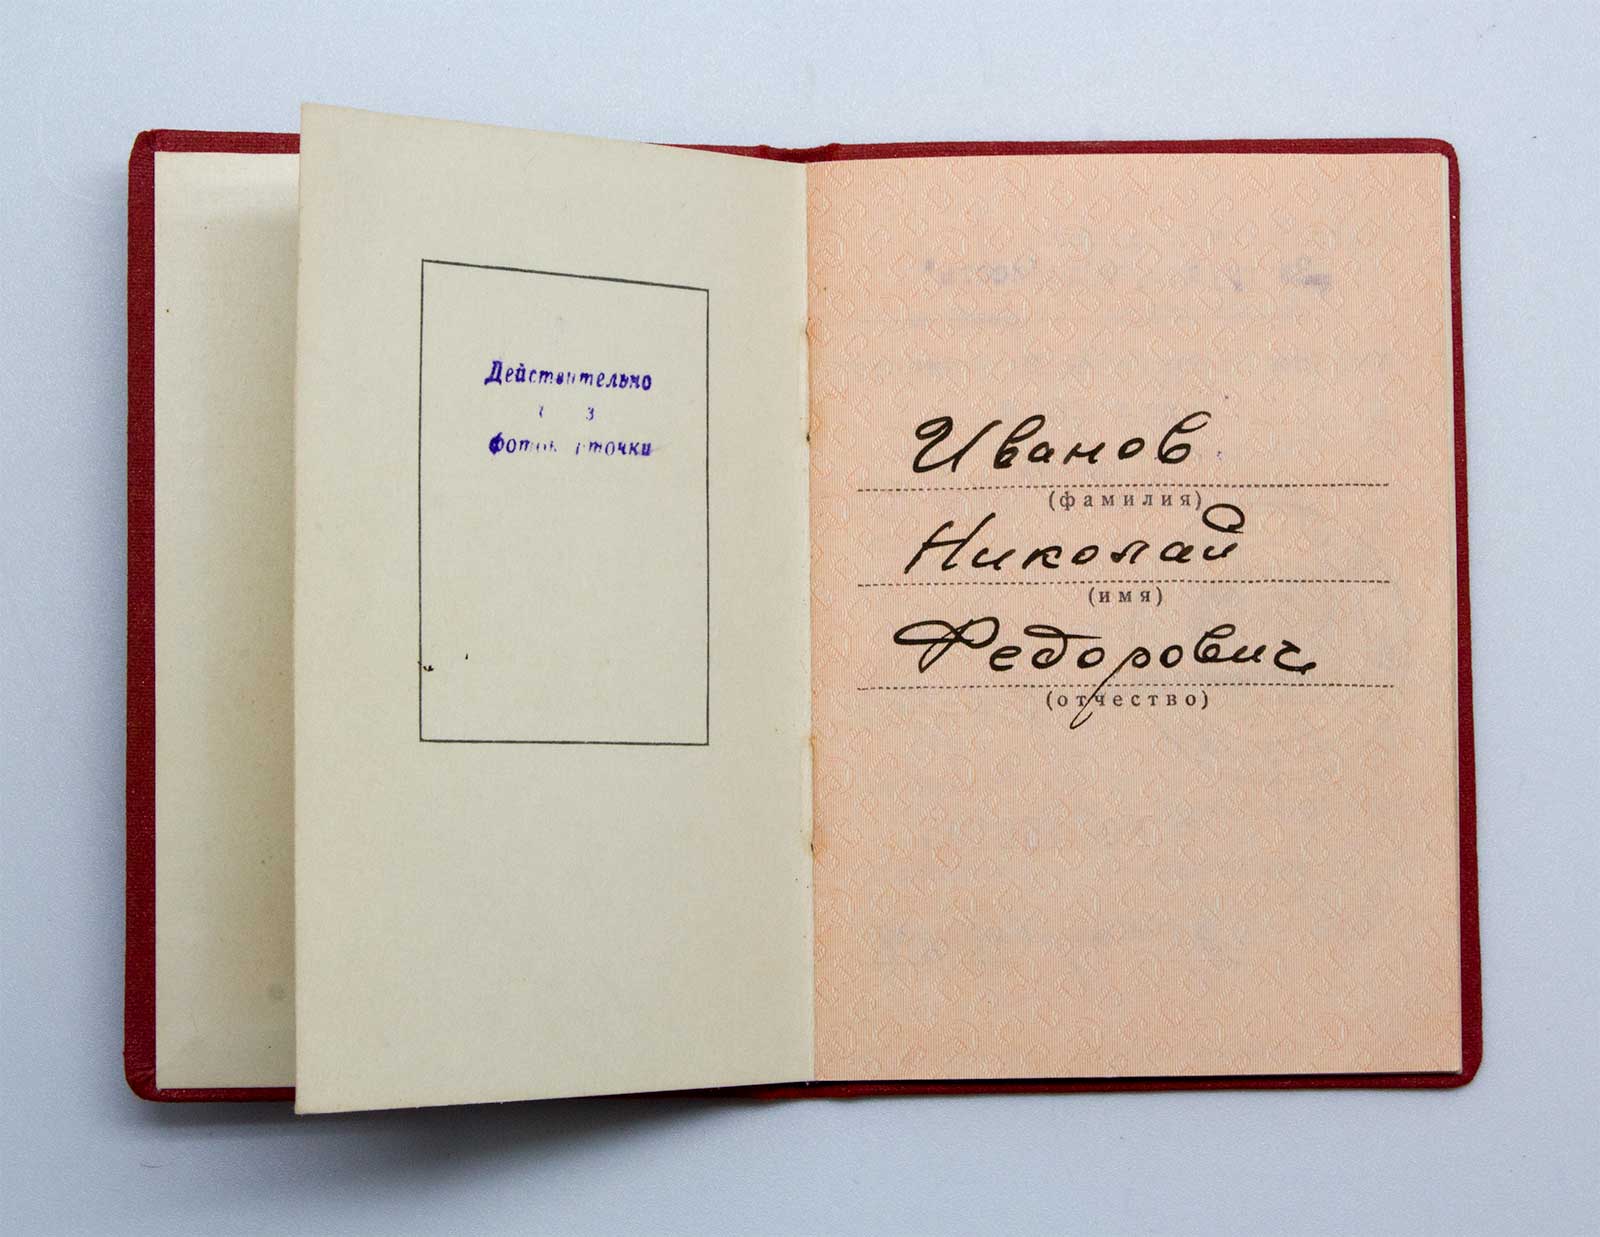 Действительно
фотокарточки
Иванов
(фамилия)
Николай
(имя)
Федорович
(отчество)